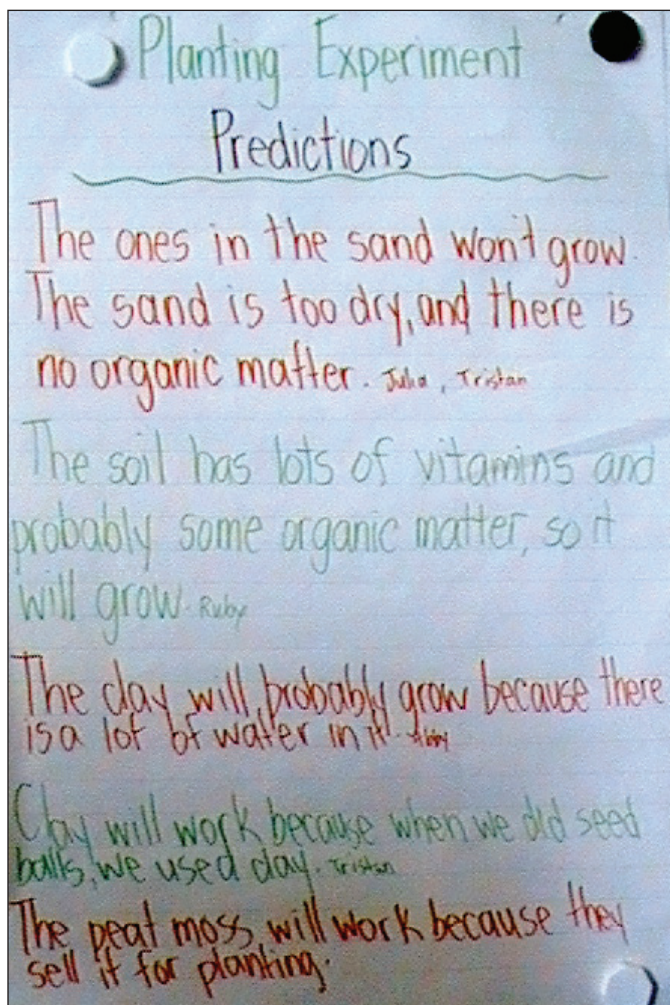 Planting Experiment
Predictions
The ones in the sand won't grow.
The sand is too dry, and there is
no organic matter. Julia, Tristan
The soil has lots of vitamins and
probably some organic matter, so it
will grow. Ruby
The clay will probably grow because there
is a lot of water in it. Abby
Clay will work because when we did seed
balls, we used clay. Tristan
The peat moss will work because they
sell it for planting.